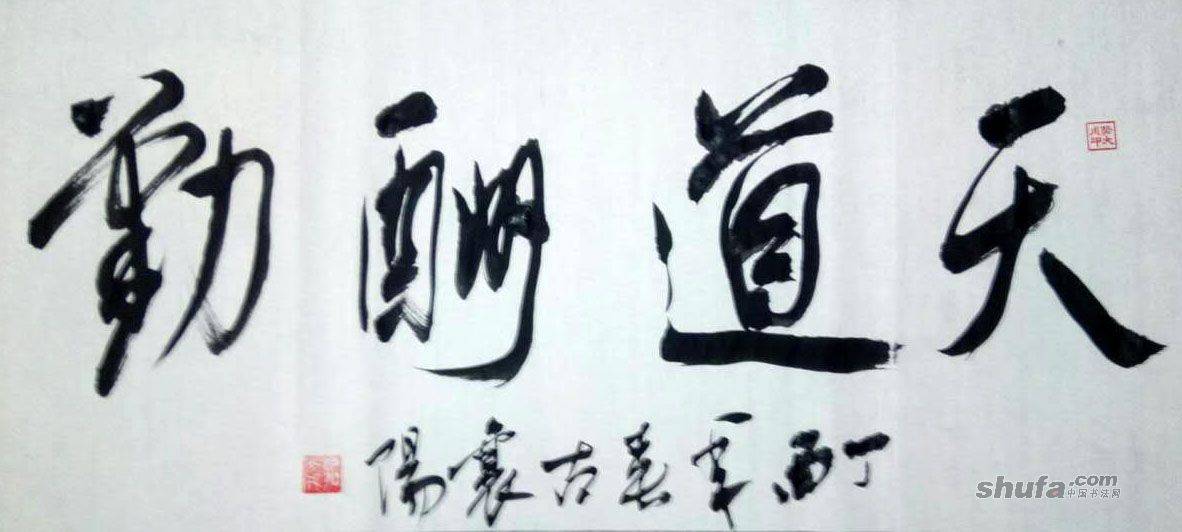 天道酬勤
丁酉年春古襄陽
shufa.com
中国书法网